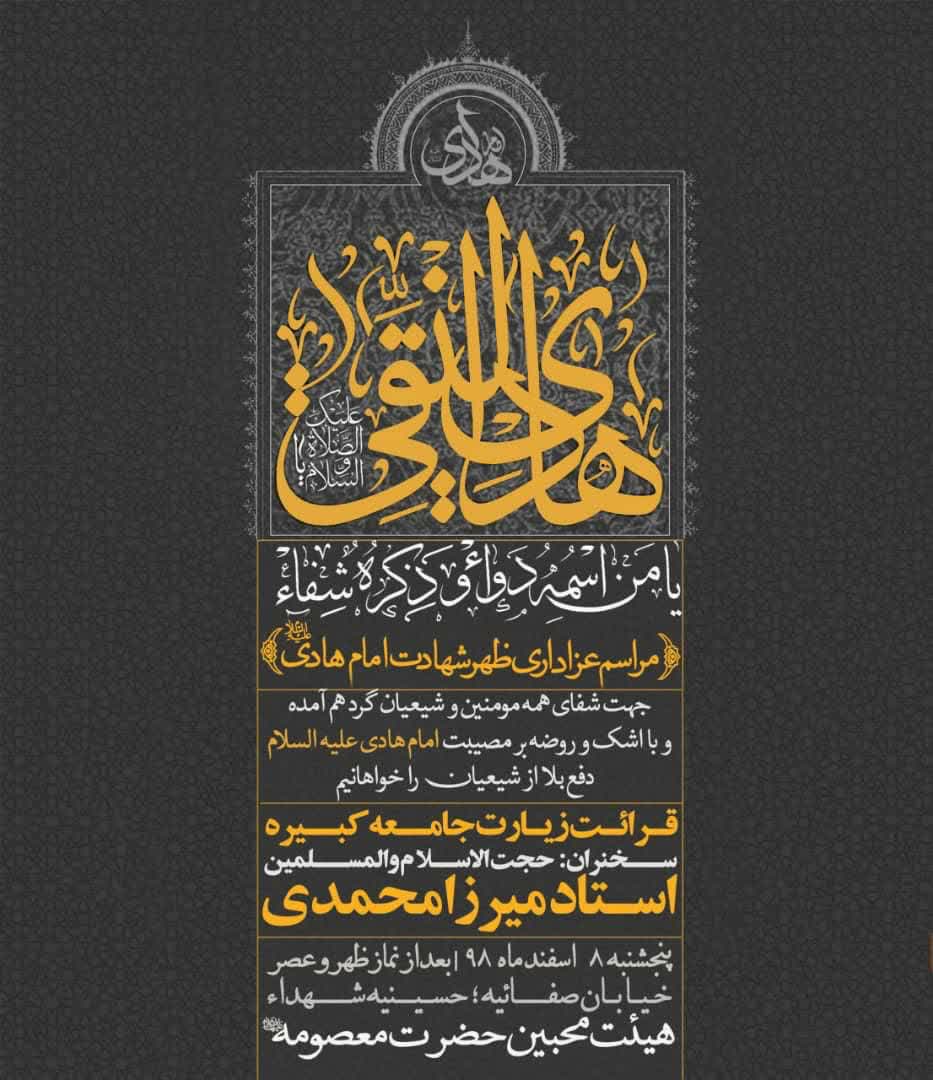 امام هادی
یا هادی النقی
علیک
الصلاة
و
السلام
یا مَن اسمُهُ دَواءٌ وَ ذِکرُهُ شِفاءٌ
مراسم عزاداری ظهر شهادت امام هادی علیه‌السلام
جهت شفای همه مومنین و شیعیان گرد هم آمده
و با اشک و روضه بر مصیبت امام هادی علیه السلام
دفع بلا از شیعیان را خواهانیم
قرائت زیارت جامعه کبیره
سخنران: حجت الاسلام والمسلمین
استاد میرزامحمدی
پنجشنبه ۸ اسفند ماه ۹۸ | بعد از نماز ظهر و عصر
خیابان صفائیه؛ حسینیه شهداء
هیئت محبین حضرت معصومه